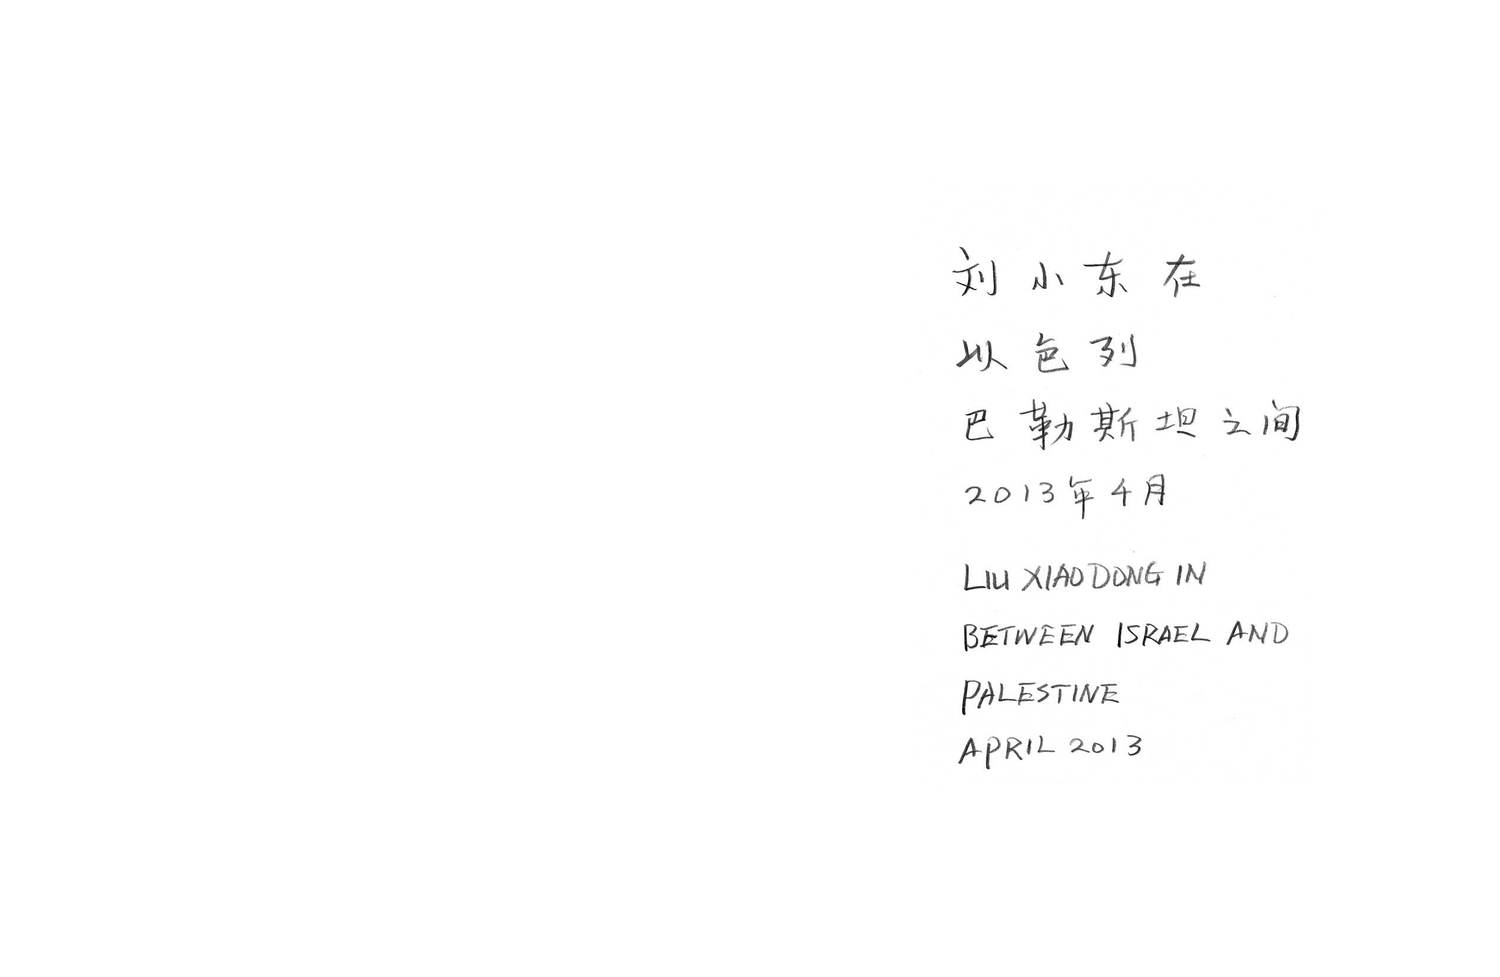 刘小东在
以色列
巴勒斯坦之间
2013年4月
LIU XIAODONG IN
BETWEEN ISRAEL AND
PALESTINE
APRIL 2013